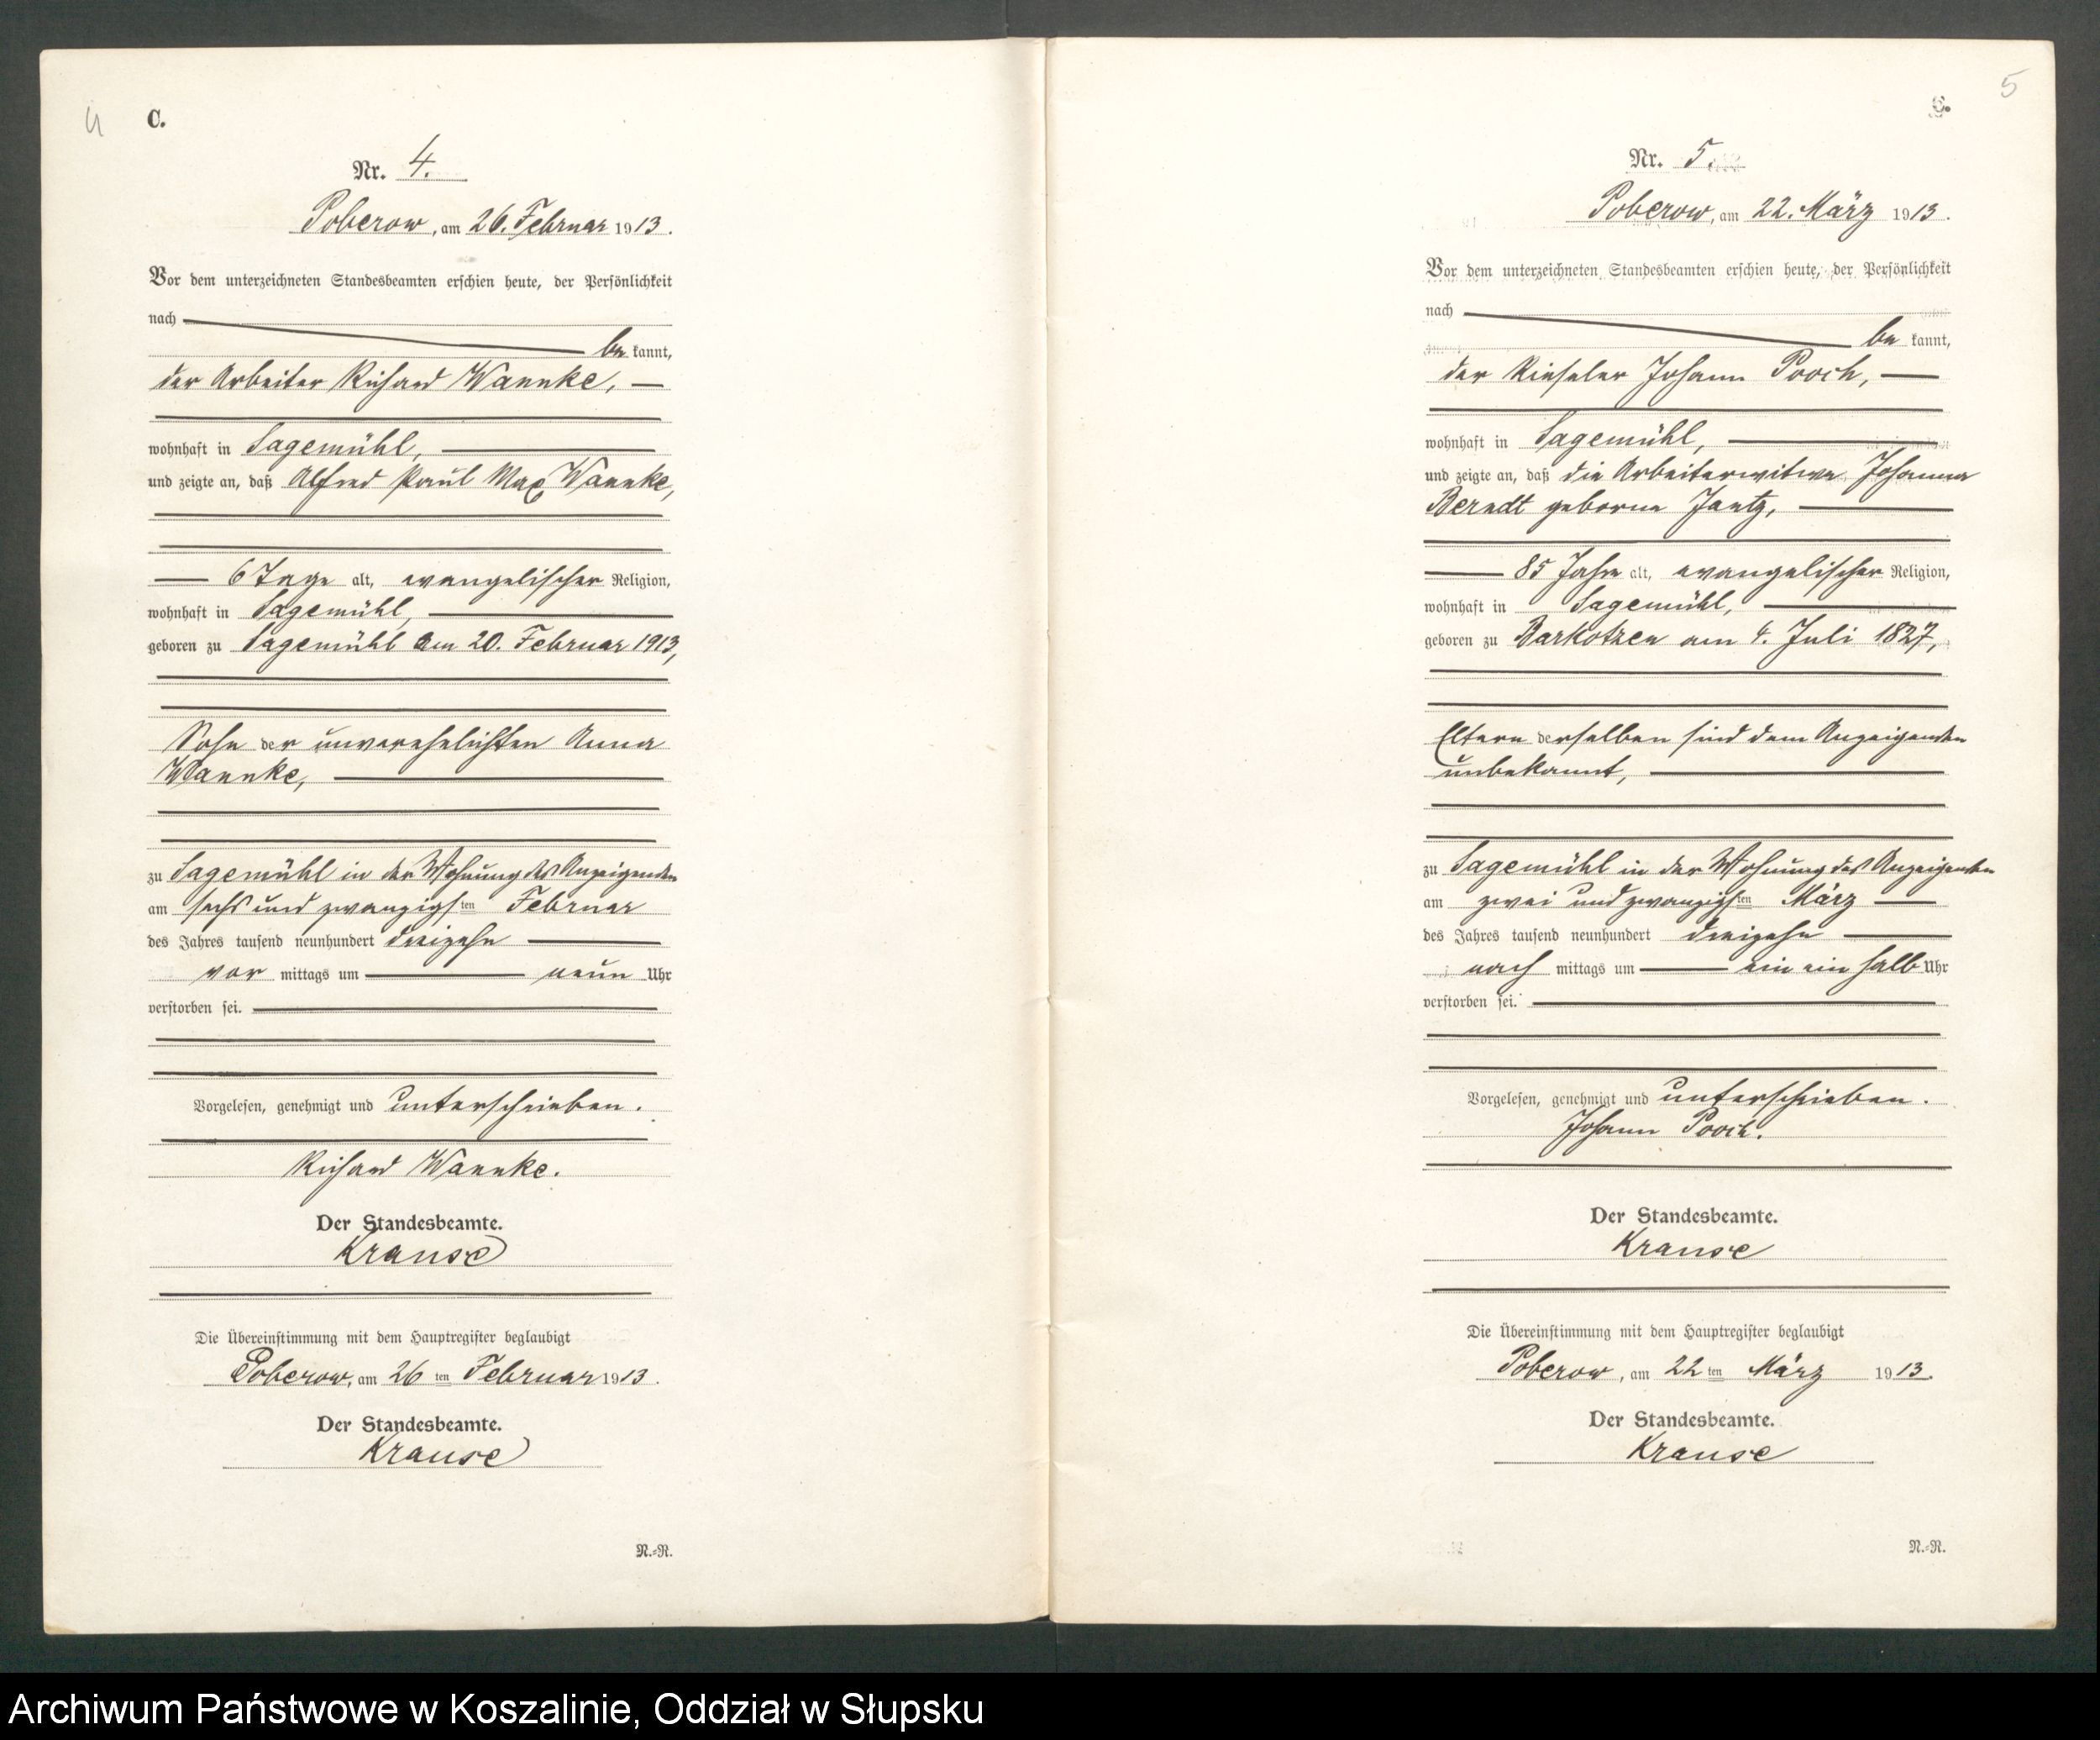 4
C.
Nr. 4.
Poberow, am 26. Februar 1913.
Vor dem unterzeichneten Standesbeamten erschien heute, der Persönlichkeit
nach
be kannt,
der Arbeiter Richard Wannke,
wohnhaft in Sagemühl,
und zeigte an, daß Alfred Paul Max Wannke,
6 Tage alt, evangelischer Religion,
wohnhaft in Sagemühl,
geboren zu Sagemühl am 20. Februar 1913,
Sohn der unverehelichten Anna
Wannke,
zu Sagemühl in der Wohnung des Anzeigenden
am sechs und zwanzigsten Februar
des Jahres tausend neunhundert dreizehn
vor mittags um neun Uhr
verstorben sei.
Vorgelesen, genehmigt und unterschrieben.
Richard Wannke.
Der Standesbeamte.
Krause
Die Übereinstimmung mit dem Hauptregister beglaubigt
Poberow, am 26 ten Februar 1913.
Der Standesbeamte.
Krause
N.=R.
5
C.
Nr. 5.
Poberow, am 22. März 1913.
Vor dem unterzeichneten Standesbeamten erschien heute, der Persönlichkeit
nach
be kannt,
der Rieseler Johann Pooch,
wohnhaft in Sagemühl,
und zeigte an, daß die Arbeiterwitwe Johanna
Berndt geborne Jantz,
85 Jahre alt, evangelischer Religion,
wohnhaft in Sagemühl,
geboren zu Barkotzen am 4. Juli 1827,
Eltern derselben sind dem Anzeigenden
unbekannt,
zu Sagemühl in der Wohnung des Anzeigenden
am zwei und zwanzigsten März
des Jahres tausend neunhundert dreizehn
nach mittags um ein ein halb Uhr
verstorben sei.
Vorgelesen, genehmigt und unterschrieben.
Johann Pooch.
Der Standesbeamte.
Krause
Die Übereinstimmung mit dem Hauptregister beglaubigt
Poberow, am 22 ten März 1913.
Der Standesbeamte.
Krause
N.=R.
Archiwum Państwowe w Koszalinie, Oddział w Słupsku